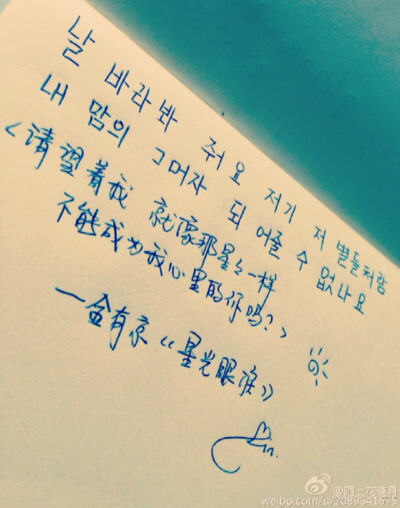 날 바라봐 줘요 저기 저 별들처럼
내 맘의 그머자 되어줄 수 없나요
<请望着我 就像那星星一样
不能成为我心里的你吗?>
一盒有京《星光眼泪》
weibo.com/u/2089641675